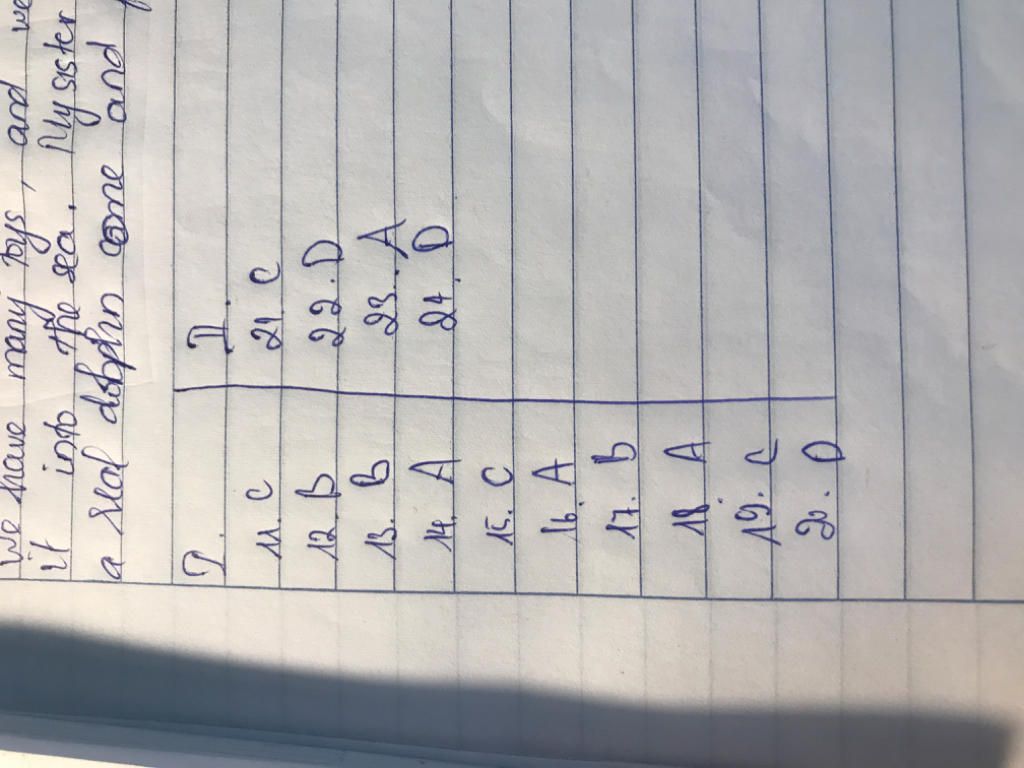 We have many toys, and we
it into the sea. My sister
a seal dolphin come and
I.
11. C
12. B
13. B
14. A
15. C
16. A
17. B
18. A
19. C
20. D
II.
21. C
22. D
23. A
24. D